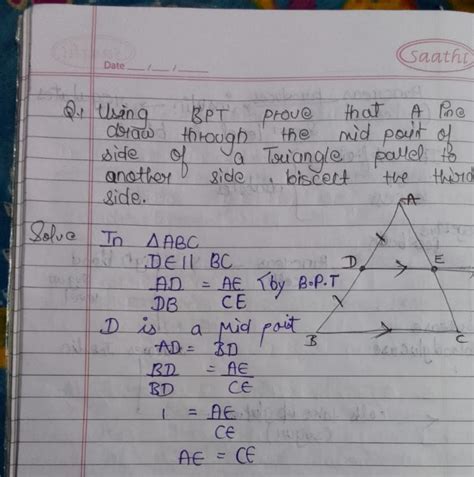 Saathi
Date __/__/__
Q.1 Using BPT prove that A line
draw through the mid point of
side of a Triangle parllel to
another side, bisect the third
side.
Solve In △ABC
DE || BC
AD/DB = AE/CE (by B.P.T
D is a mid poit
AD = BD
BD/BD = AE/CE
1 = AE/CE
AE = CE
A
D
E
B
C